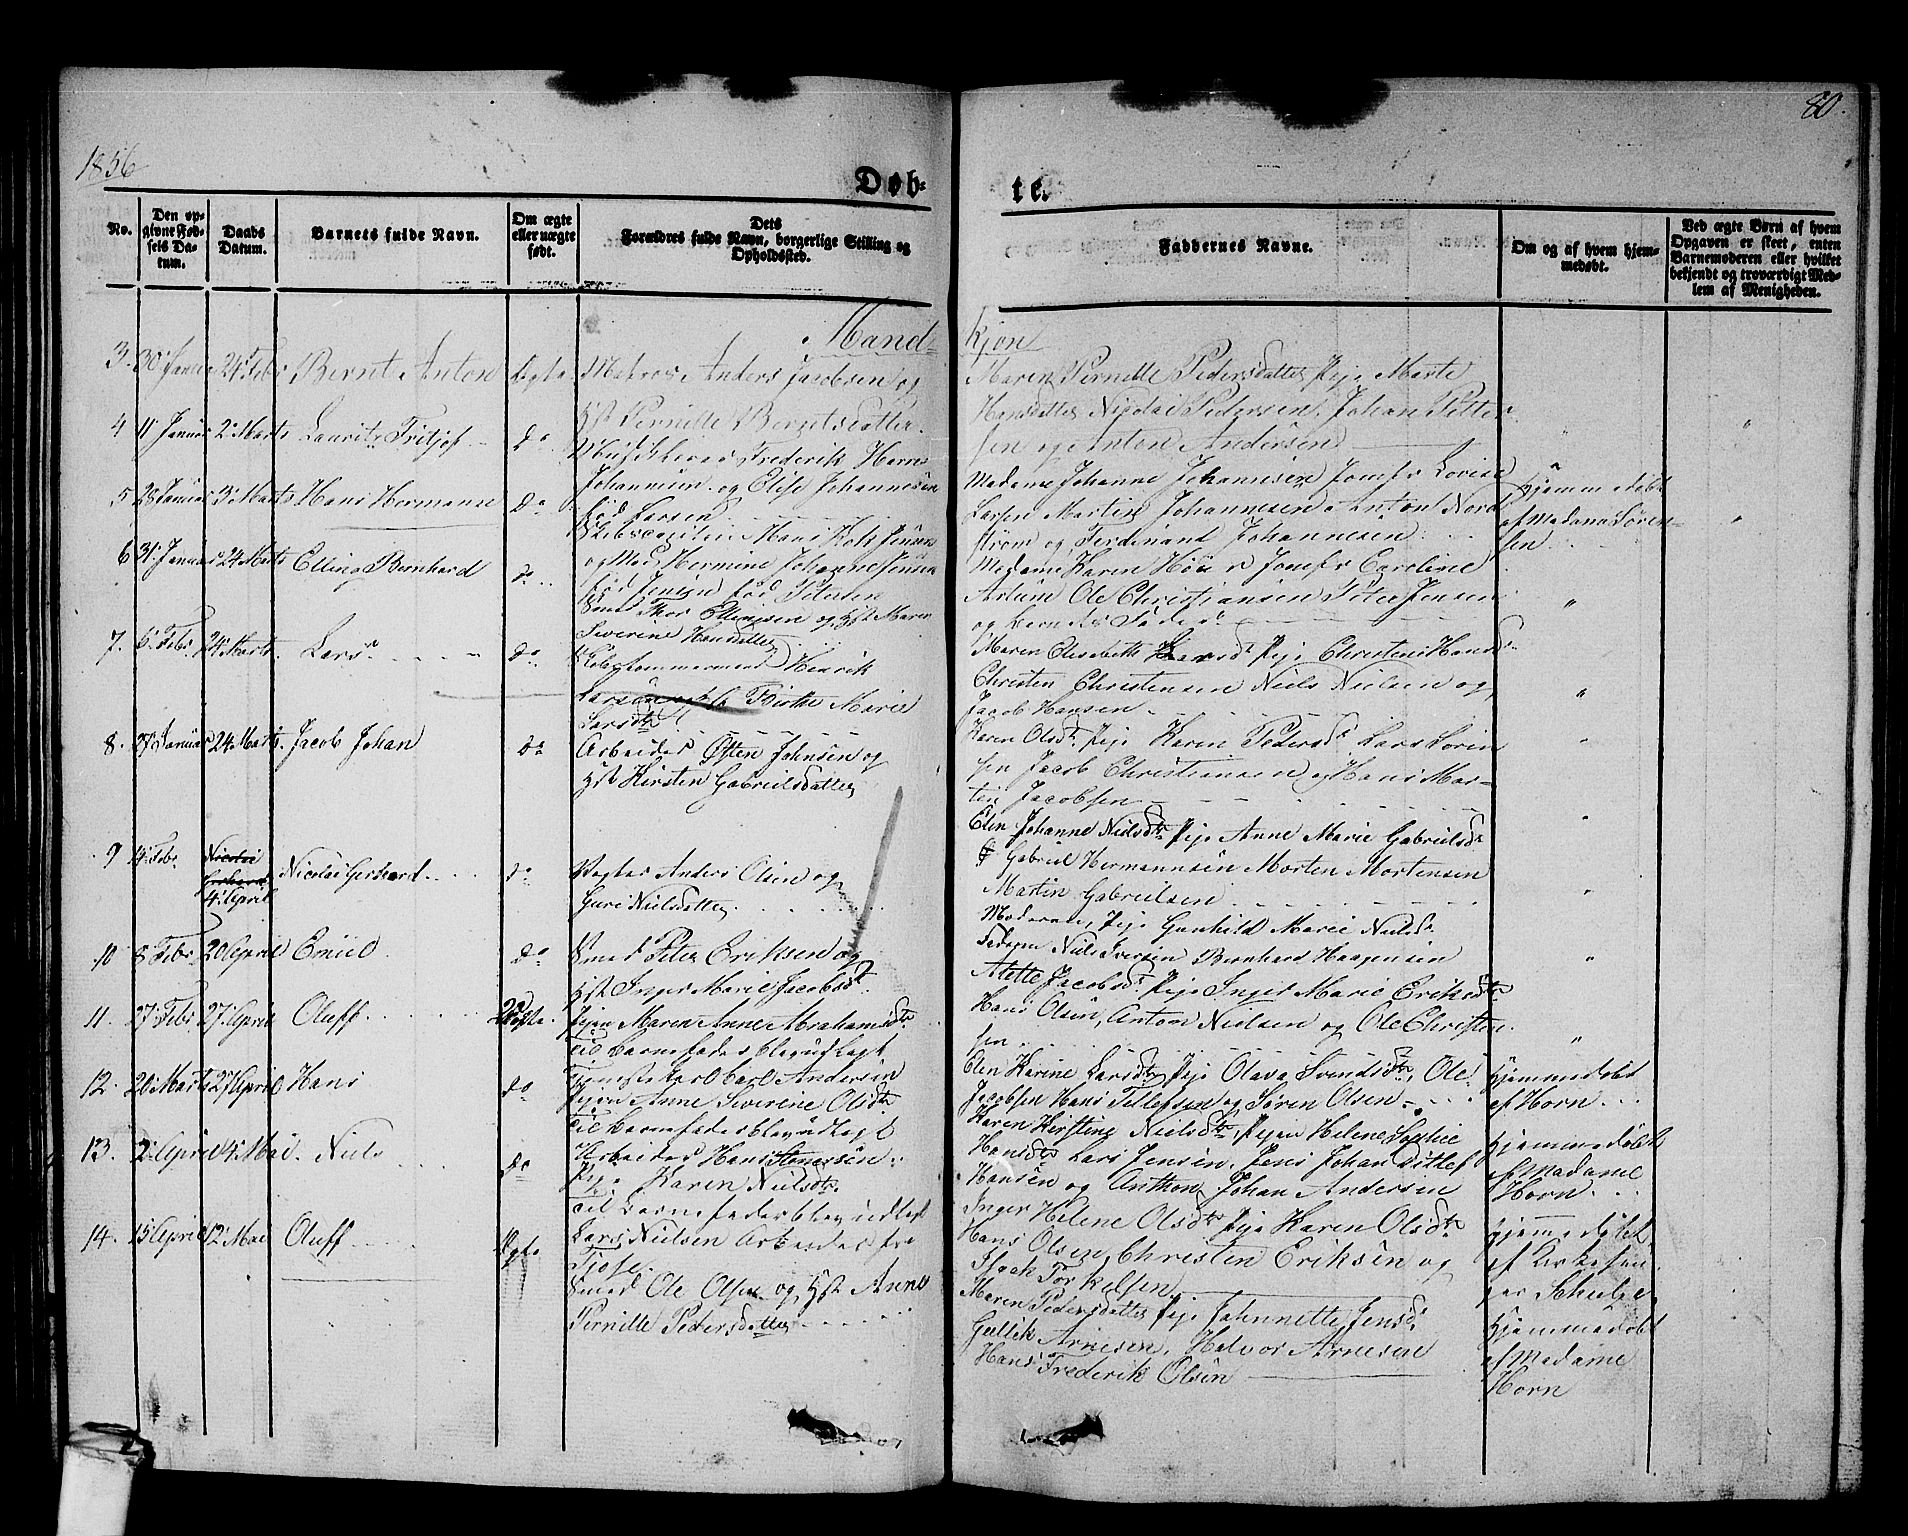 1856
80.
Døb-
te.
No.
Den op-
givne Fød-
sels Da-
tum.
Daabs
Datum.
Barnets fulde Navn.
Om ægte
eller uægte
født.
Dets
Forældres fulde Navn, borgerlige Stilling og
Opholdssted.
Faddernes Navne.
Om og af hvem hjem-
medøbt.
Ved ægte Børn af hvem
Opgaven er skeet, enten
Barnemoderen eller hvilket
bekjendt og troværdigt Med-
lem af Menigheden.
Mand-
kjøn
3. 30 Januar 24 Febr Bernt Anton Ægte Matros Anders Jacobsen og
Hst Pernille Berntsdatter
Maren Pernille Pedersdatter Pige Marte
Hansdatter Nicolai Pedersen, Johan Petter
sen og Anton Andersen
4 11 Januar 2 Marts Lauritz Fritjof Do
Frederik Herm
Johannesen og Elise Johannesen
fød Larsen
Madame Johanne Johannesen Jomfr Lovise
Larsen Martin Johannesen Anton Nord
strøm og Ferdinand Johannesen
5 28 Januar 3 Marts Hans Hermann Do
Skibscapitain Hans Jensen
og Mad Hermine Johanne Jensen
fød Petersen
Madame Karen Jomfr Caroline
Ole Christiansen Peter Jensen
og Barnets Fader
Hjemmedøbt
af Madame Søren-
sen
6 31 Januar 24 Marts Elling Bernhard Do
Smed Thor Ellingsen og Hst Maren
Severine Hansdatter
Maren Elisabeth Larsdt Pige Christine Hansd
Christen Christensen Niels Nielsen og
Jacob Hansen
7. 6 Febr. 24 Marts Lars Do
Tømmermand Henrik
Larsen og Hst Birthe Marie
Larsdtr
Karen Olsdt. Pige Karen Pedersd Lars Lorin
sen Jacob Christiansen og Hans Mar-
tin Jacobsen
8. 27 Januar 24 Marts. Jacob Johan Do
Arbeider Østen Johnsen og
Hst Kirsten Gabrielsdatter
Elen Johanne Nielsdtr Pige Anne Marie Gabrielsdr
Gabriel Hermannsen Morten Mortensen
Martin Gabrielsen
9 4 Febr.
Nicolai
Gerhard
4 April
Nicolai Gerhard Do
Anders Olsen og
Guri Nielsdatter
Moderen, Pige Gunhild Marie Nielsd
Faderen Niels Iversen Bernhard Haagensen
10 8 Febr 20 April Emiel Do
Smed Peter Eriksen og
Hst Inger Marie Jacobsd
Alette Jacobsd. Pige Inger Marie Eriksdtr
Hans Olsen, Anton Nielsen og Ole Christen
sen
11. 27 Febr 27 April Oluff
Pigen Maren Anne Abrahamsdtr
Til Barnefader blev udlagt
Carl Andersen
Elen Karine Larsdtr Pige Olava Svendsdtr, Ole
Jacobsen Hans Tellefsen og Søren Olsen
Hjemmedøbt
af Horn
12. 20 Marts 27 April Hans Do
Pigen Anne Severine Olsdtr
Til Barnefader blev udlagt
Arbeider Hans
Karen Kirstine Nielsdtr, Pigen Helene Sophie
Hansdtr Lars Jensen, Jens Johan Ditlef
Hansen og Anthon Johan Andersen
Hjemmedøbt
af Madame
Horn
13. 2 April 4 Mai. Niels Do
Pige Karen Nielsdtr.
Til Barnefader blev udlagt
Lars Nielsen Arbeider fra
Tjøse.
Inger Helene Olsdtr Pige Karen Olsdtr
Hans Olsen, Christen Eriksen og
Isach Torkelsen
Hjemmedøbt
af Kirkesan
ger Schulze.
14. 15 April 12 Mai Oluff Ægte
Smed Ole Olsen og Hst Anne
Pernille Pedersdatter
Maren Pedersdatter Pige Johnnette Jensd.
Gullik Arnesen, Halvor Arnesen
Hans Frederik Olsen
Hjemmedøbt
af Madame
Horn